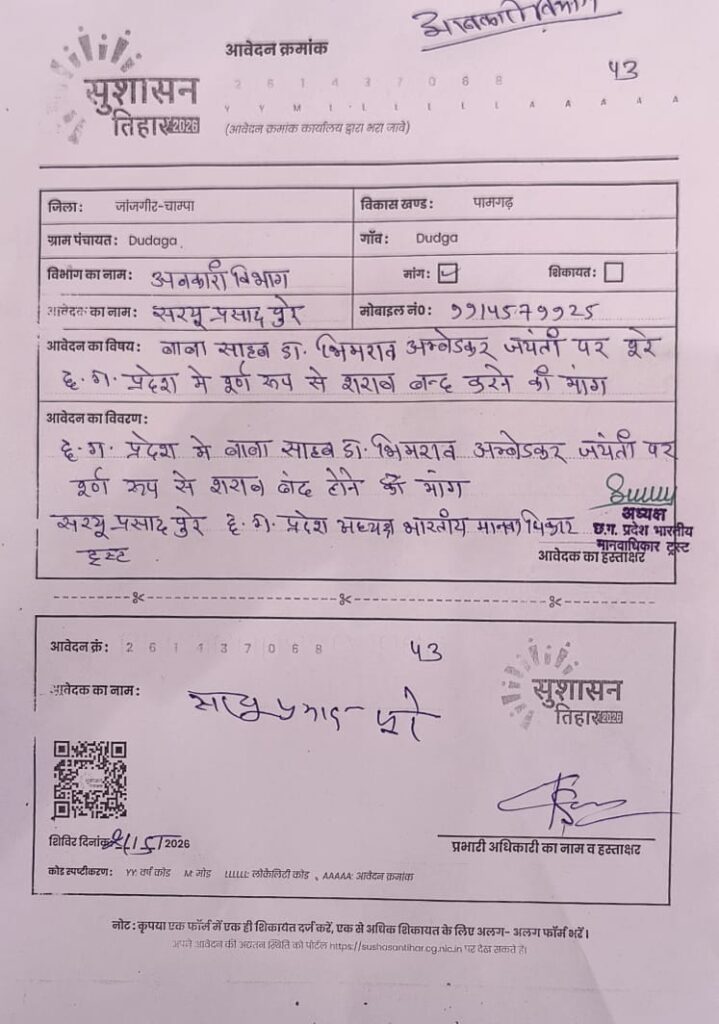 आबकारी विभाग
आवेदन क्रमांक
43
2 6 1 4 3 7 0 6 8
सुशासन
तिहार 2026
Y Y M L L L L L L A A A A A
(आवेदन क्रमांक कार्यालय द्वारा भरा जावे)
जिला: जांजगीर-चाम्पा विकास खण्ड: पामगढ़
ग्राम पंचायत: Dudaga गाँव: Dudga
विभाग का नाम: अबकारी विभाग मांग: शिकायत:
आवेदक का नाम: सरयू प्रसाद घुरे मोबाइल नं0:
आवेदन का विषय: बाबा साहब डा. भिमराव अम्बेडकर जयंती पर पूरे
छ. ग. प्रदेश मे पूर्ण रूप से शराब बन्द करने की मांग
आवेदन का विवरण:
छ. ग. प्रदेश मे बाबा साहब डा. भिमराव अम्बेडकर जयंती पर
पूर्ण रूप से शराब बंद होने की मांग
सरयू प्रसाद घुरे छ. ग. प्रदेश अध्यक्ष भारतीय मानवाधिकार
ट्रस्ट
अध्यक्ष
छ.ग. प्रदेश भारतीय
मानवाधिकार ट्रस्ट
आवेदक का हस्ताक्षर
आवेदन क्रं: 2 6 1 4 3 7 0 6 8 43
आवेदक का नाम: सरयू प्रसाद घुरे
सुशासन
तिहार 2026
शिविर दिनांक 2026
प्रभारी अधिकारी का नाम व हस्ताक्षर
कोड स्पष्टीकरण: YY: वर्ष कोड M: मोड LLLLLL: लोकैलिटी कोड , AAAAA: आवेदन क्रमांक
नोट : कृपया एक फॉर्म में एक ही शिकायत दर्ज करें, एक से अधिक शिकायत के लिए अलग- अलग फॉर्म भरें ।
अपने आवेदन की अद्यतन स्थिति को पोर्टल https://sushasantihar.cg.nic.in पर देख सकते है।